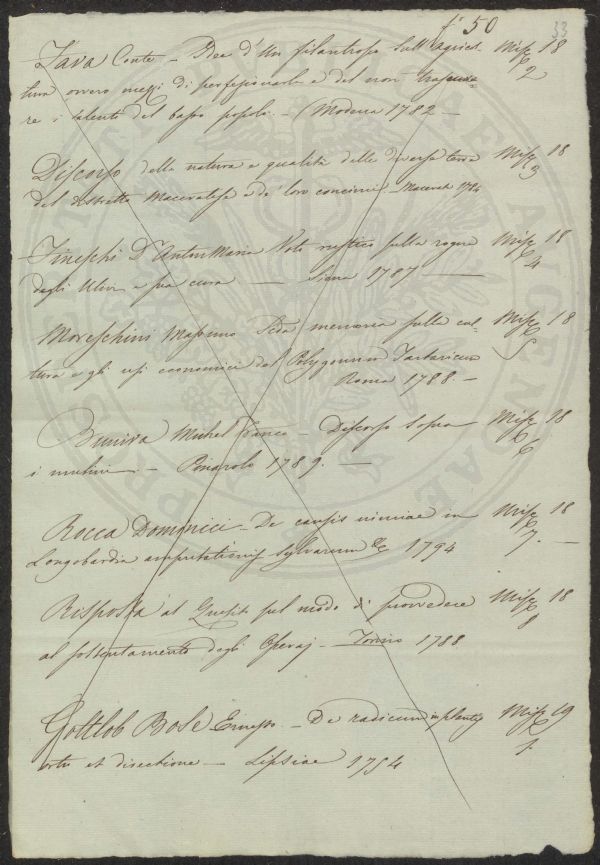 f. 50 33
Fava Conte – Idea d'un filantropo sull'agricol- Misc 18
tura ovvero mezzi di perfezionarla e del non trascura- 2
re i talenti del basso popolo. – (Modena 1782 –
Discorso della natura e qualità delle diverse terre Misc 18
del distretto Maceratese e de' loro concimi Macerat 1784 3
Fineschi D. Anton Maria Voti sulla rogna Misc 18
degli Ulivi e sua cura — Siena 1787 — 4
Moreschini Massimo memoria sulla col- Misc 18
tura e gli usi economici del Polygonum Tartaricum 5
Roma 1788 –
Buniva Michel Franco – Discorso sopra Misc 18
i – Pinarolo 1789. — 6
Rocca Dominici – De causis nimiae in Longobardia Misc 18
amputationis sylvarum &c 1794 7. —
Risposta al Quesito sul modo di provvedere Misc 18
al sostentamento degli Operaj – Torino 1788 8
Gottlob Bose Ernesto – De radicum in plantis Misc 19
ortu et directione — Lipsiae 1754 1.